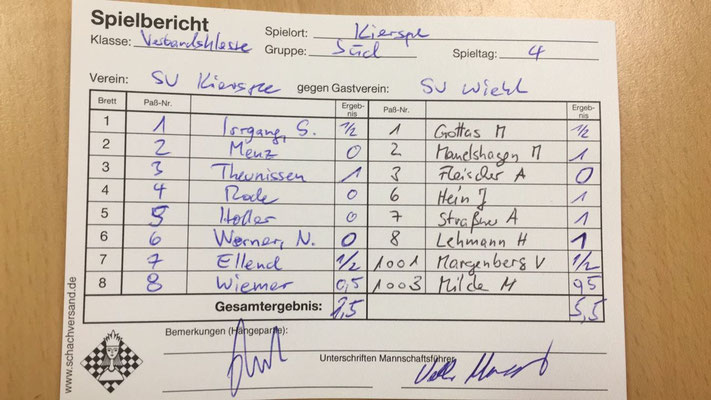 Spielbericht
Spielort: Kierspe
Klasse: Verbandsklasse Gruppe: Süd Spieltag: 4
Verein: SV Kierspe gegen Gastverein: SV Wiehl
Brett Paß-Nr. Ergeb-nis Paß-Nr. Ergeb-nis
1 1 Irrgang, S. 1/2 1 Gottas M 1/2
2 2 Menz 0 2 Manelshagen M 1
3 3 Theunissen 1 3 Fleischer A 0
4 4 Rode 0 6 Hein J 1
5 5 Holler 0 7 Straßner A 1
6 6 Werner, N. 0 8 Lehmann H 1
7 7 Ellend 1/2 1001 Margenberg V 1/2
8 8 Wiemer 0,5 1003 Milde M 0,5
Gesamtergebnis: 2,5 5,5
Bemerkungen (Hängeparte):
Unterschriften Mannschaftsführer
www.schachversand.de